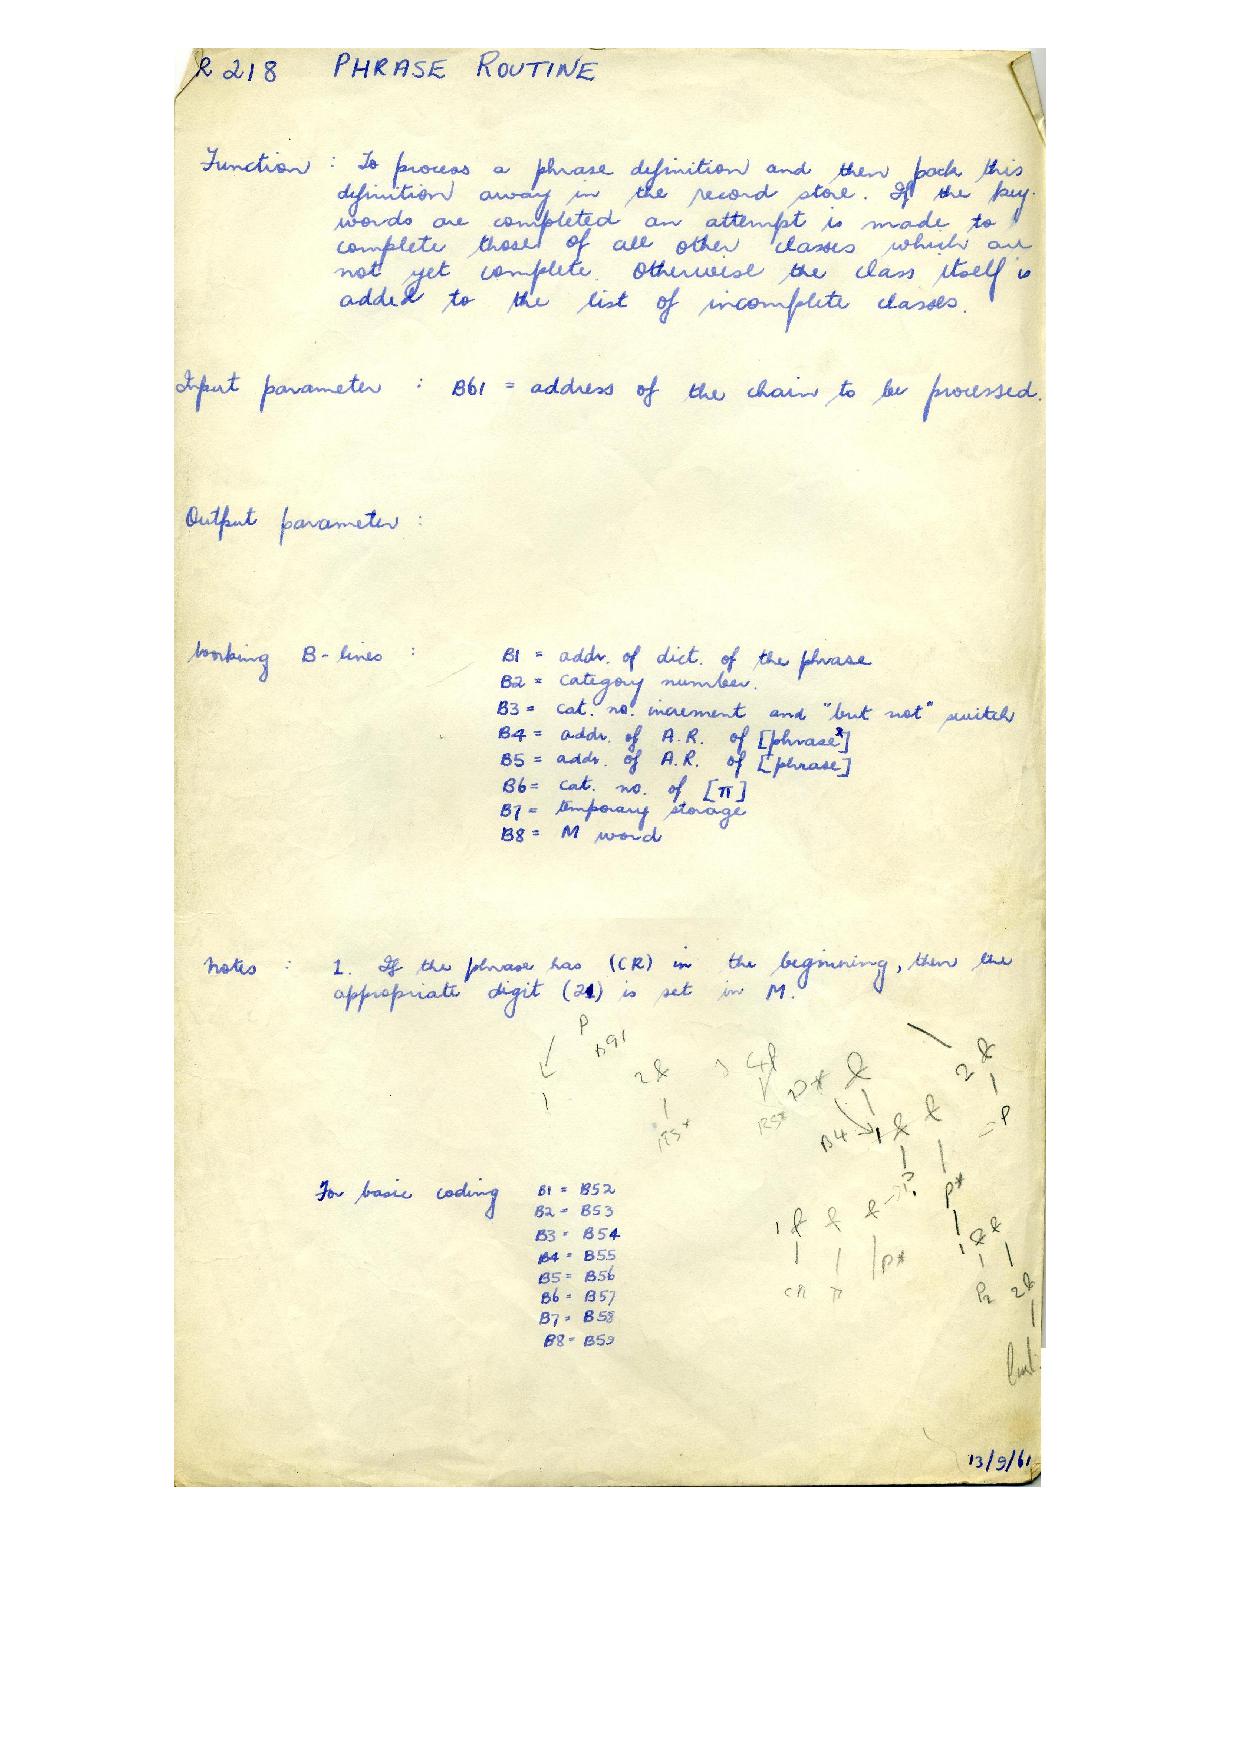 R 218 PHRASE ROUTINE
Function : To process a phrase definition and then pack this
definition away in the record store. If the key-
words are completed an attempt is made to
complete those of all other classes which are
not yet complete. Otherwise the class itself is
added to the list of incomplete classes.
Input parameter : B61 = address of the chain to be processed.
Output parameter :
Working B-lines : B1 = addr. of dict. of the phrase
B2 = category number.
B3 = cat. no. increment and "but not" switch
B4 = addr. of A.R. of [phrase*]
B5 = addr. of A.R. of [phrase]
B6 = cat. no. of [π]
B7 = temporary storage
B8 = M word
Notes : 1. If the phrase has (CR) in the beginning, then the
appropriate digit (21) is set in M.
P
2 &
&
2 &
1
B4
1 & &
P
P*
For basic coding B1 = B52
B2 = B53
B3 = B54
B4 = B55
B5 = B56
B6 = B57
B7 = B58
B8 = B59
1 & & &
P*
1 & &
CR π
P2 2&
13/9/61